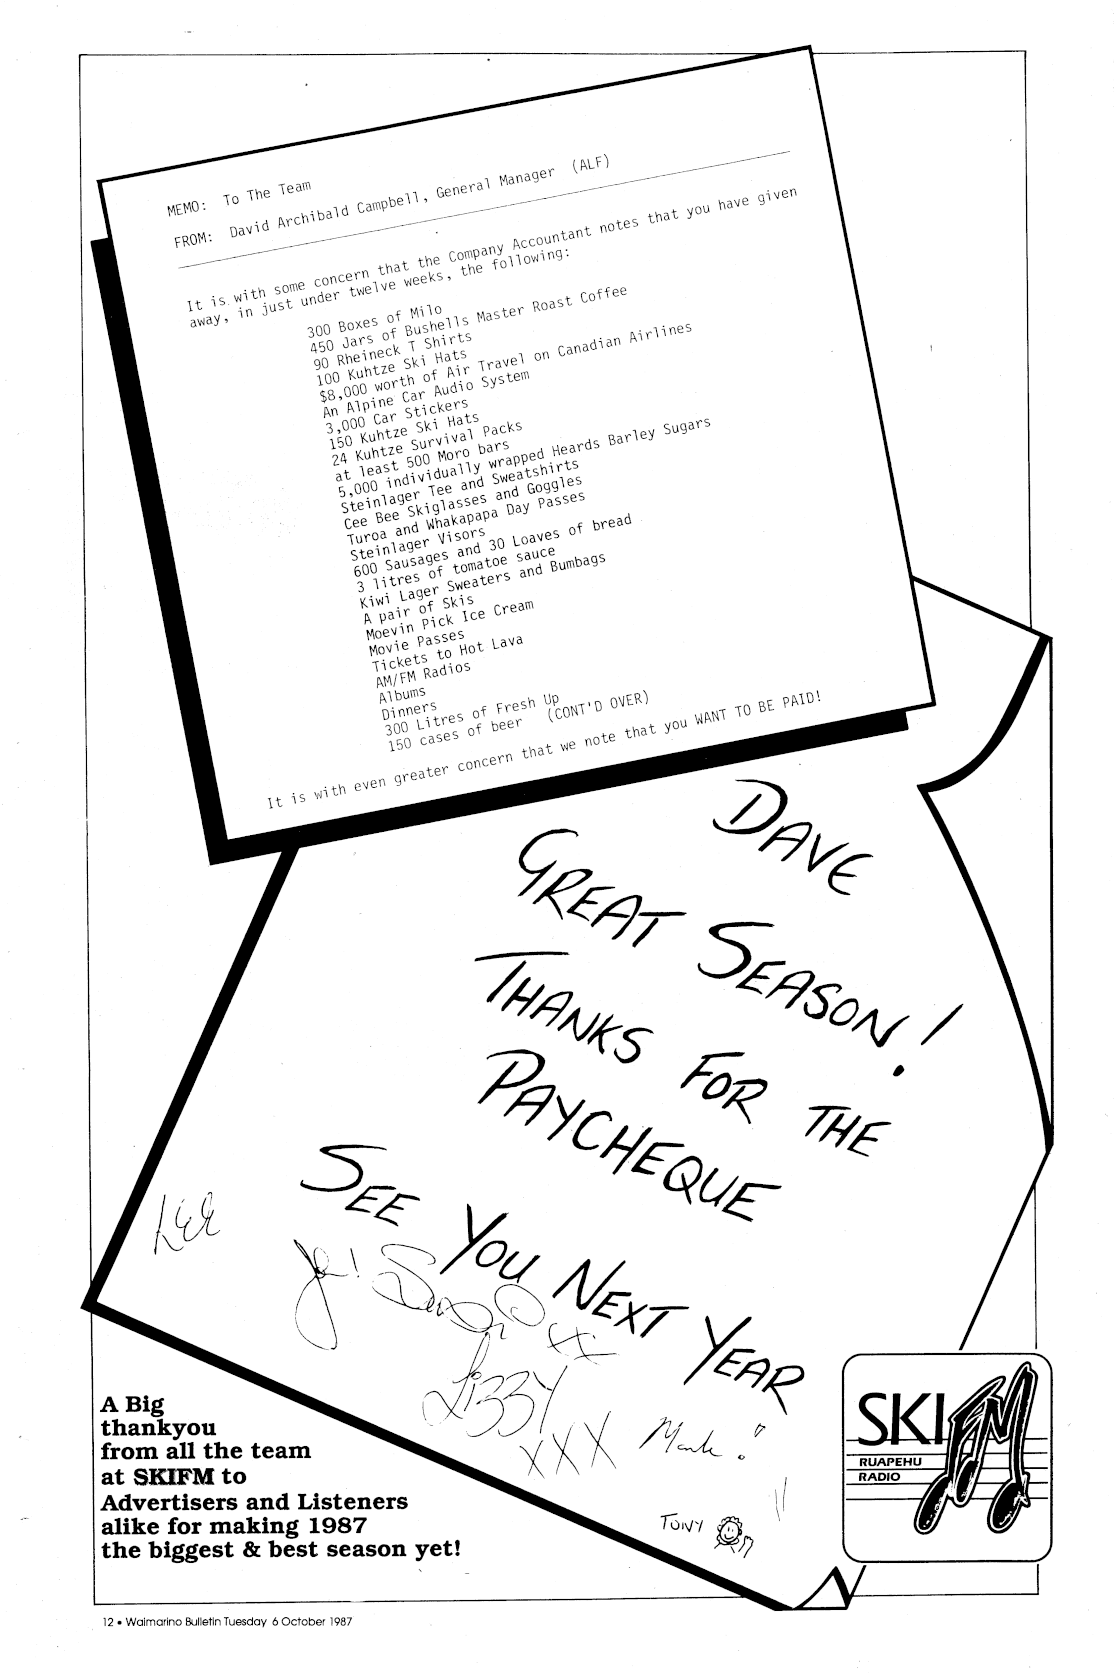 MEMO: To The Team
FROM: David Archibald Campbell, General Manager (ALF)
It is with some concern that the Company Accountant notes that you have given
away, in just under twelve weeks, the following:
300 Boxes of Milo
450 Jars of Bushells Master Roast Coffee
90 Rheineck T Shirts
100 Kuhtze Ski Hats
$8,000 worth of Air Travel on Canadian Airlines
An Alpine Car Audio System
3,000 Car Stickers
150 Kuhtze Ski Hats
24 Kuhtze Survival Packs
at least 500 Moro bars
5,000 individually wrapped Heards Barley Sugars
Steinlager Tee and Sweatshirts
Cee Bee Skiglasses and Goggles
Turoa and Whakapapa Day Passes
Steinlager Visors
600 Sausages and 30 Loaves of bread
3 litres of tomatoe sauce
Kiwi Lager Sweaters and Bumbags
A pair of Skis
Moevin Pick Ice Cream
Movie Passes
Tickets to Hot Lava
AM/FM Radios
Albums
Dinners
300 Litres of Fresh Up
150 cases of beer (CONT'D OVER)
It is with even greater concern that we note that you WANT TO BE PAID!
DAVE
GREAT SEASON!
THANKS FOR THE
PAYCHEQUE
SEE YOU NEXT YEAR
Lee
Jo!
xx
Lizzy
XXX
Mark!
TONY
A Big
thankyou
from all the team
at SKIFM to
Advertisers and Listeners
alike for making 1987
the biggest & best season yet!
SKIFM
RUAPEHU
RADIO
12 • Waimarino Bulletin Tuesday 6 October 1987